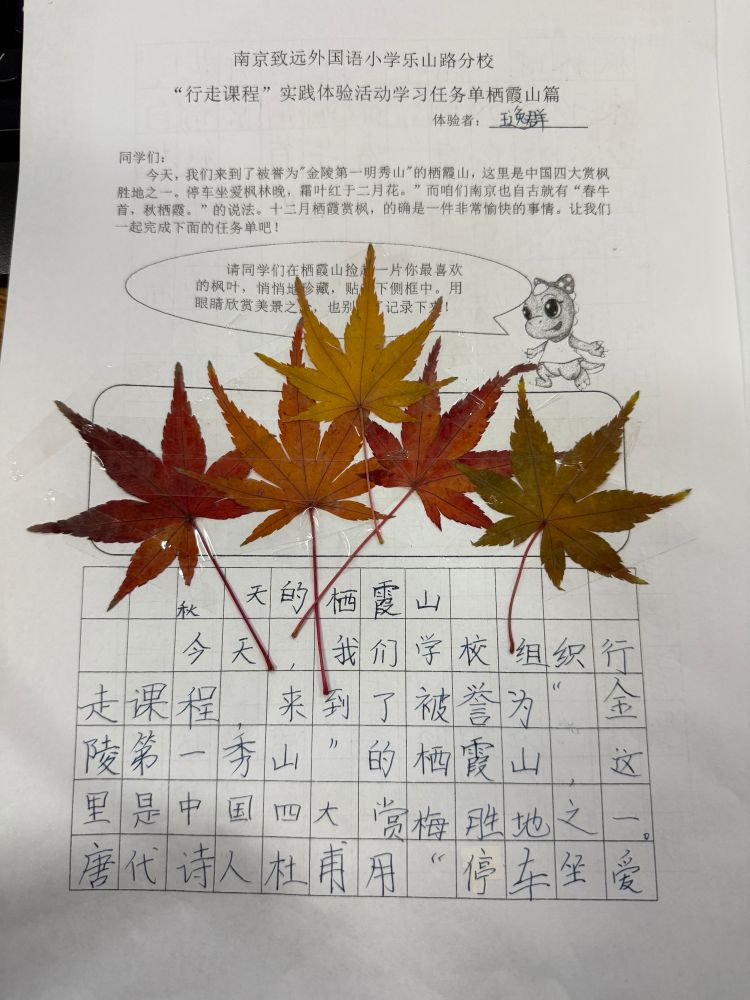 南京致远外国语小学乐山路分校
“行走课程”实践体验活动学习任务单栖霞山篇
体验者：王逸群
同学们：
今天，我们来到了被誉为"金陵第一明秀山"的栖霞山，这里是中国四大赏枫
胜地之一。停车坐爱枫林晚，霜叶红于二月花。”而咱们南京也自古就有“春牛
首，秋栖霞。”的说法。十二月栖霞赏枫，的确是一件非常愉快的事情。让我们
一起完成下面的任务单吧！
请同学们在栖霞山捡 一片你最喜欢
的枫叶，悄悄地珍藏，贴 下侧框中。用
眼睛欣赏美景之 ，也别 了记录下来！
秋天的栖霞山
今天，我们学校组织行
走课程，来到了被誉为“金
陵第一秀山”的栖霞山，这
里是中国四大赏梅胜地之一。
唐代诗人杜甫用“停车坐爱